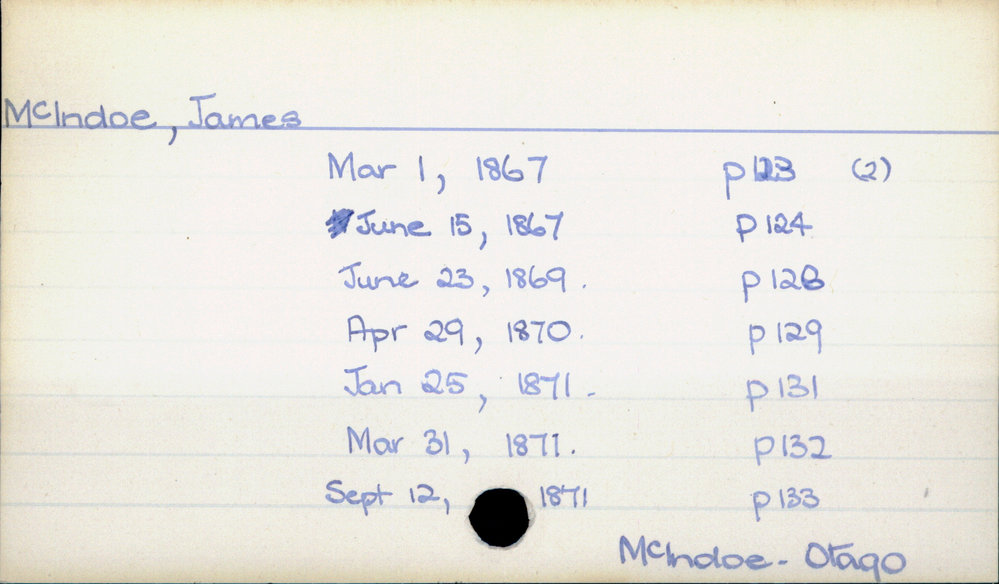 McIndoe, James
Mar 1, 1867 p123 (2)
June 15, 1867 p124
June 23, 1869. p128
Apr 29, 1870. p129
Jan 25, 1871- p131
Mar 31, 1871. p132
Sept 12, 1871 p133
McIndoe - Otago